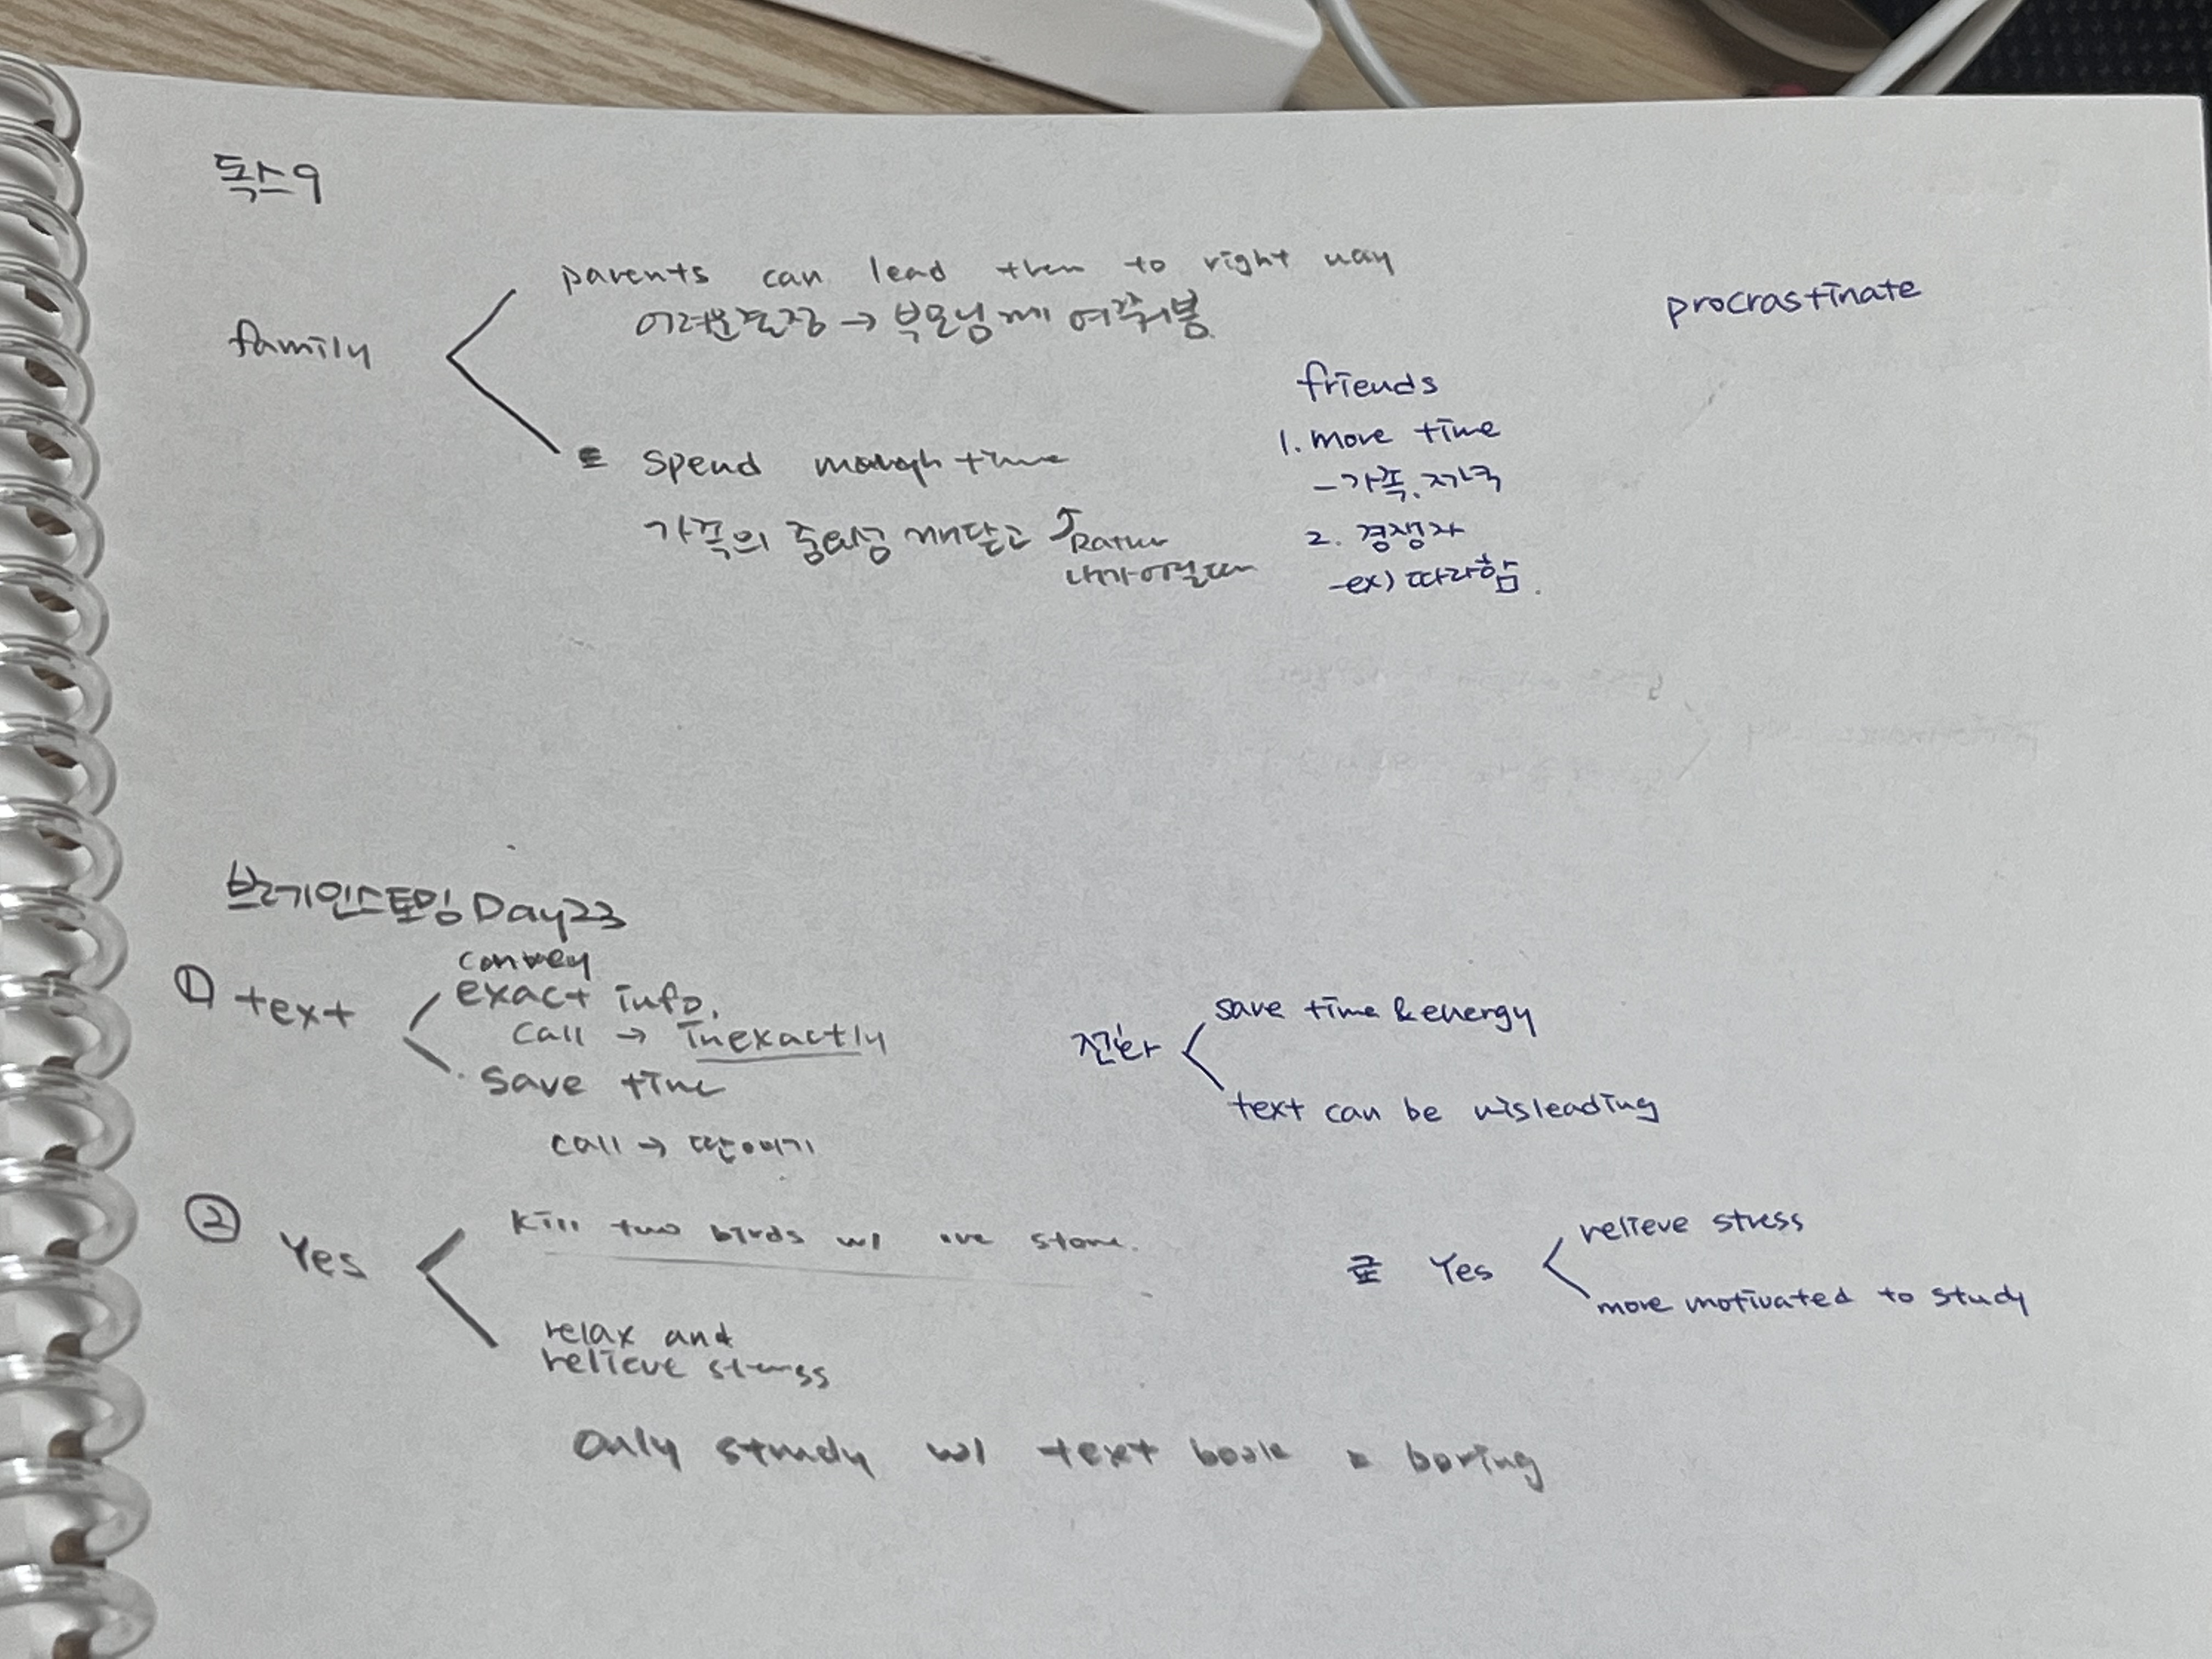 독스9
family
parents can lead them to right way
어려운결정 → 부모님께 여쭤봄
spend time
가족의 중요성 깨닫고
procrastinate
friends
1. more time
- 가족.
2. 경쟁자
-ex) 따라함.
브레인스토밍 Day23
① text
convey
exact info.
call → inexactly
save time
call → 딴얘기
전화
save time & energy
text can be misleading
② Yes
kill two birds w/ one stone.
relax and
relieve stress
only study w/ text book = boring
Yes
relieve stress
more motivated to study